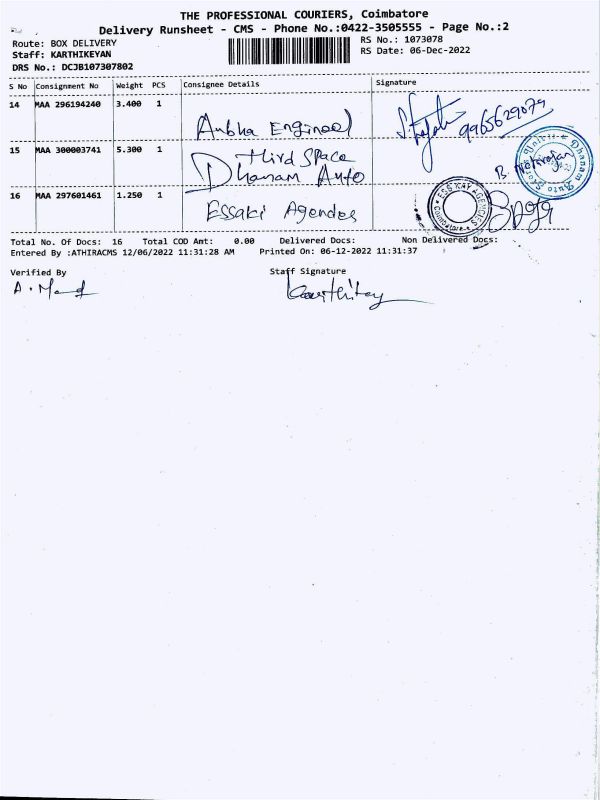 THE PROFESSIONAL COURIERS, Coimbatore
Delivery Runsheet - CMS - Phone No.:0422-3505555 - Page No.:2
Route: BOX DELIVERY
RS No.: 1073078
Staff: KARTHIKEYAN
RS Date: 06-Dec-2022
DRS No.: DCJB107307802
S No Consignment No Weight PCS Consignee Details Signature
14 MAA 296194240 3.400 1
Anbha Engineel 9965629079
15 MAA 300003741 5.300 1
third Space
Dhanam Auto
16 MAA 297601461 1.250 1
Essaki Agendes
ESS KAY AGENCIES
Coimbatore
Dhanam Auto Store
Total No. Of Docs: 16 Total COD Amt: 0.00 Delivered Docs: Non Delivered Docs:
Entered By :ATHIRACMS 12/06/2022 11:31:28 AM Printed On: 06-12-2022 11:31:37
Verified By Staff Signature